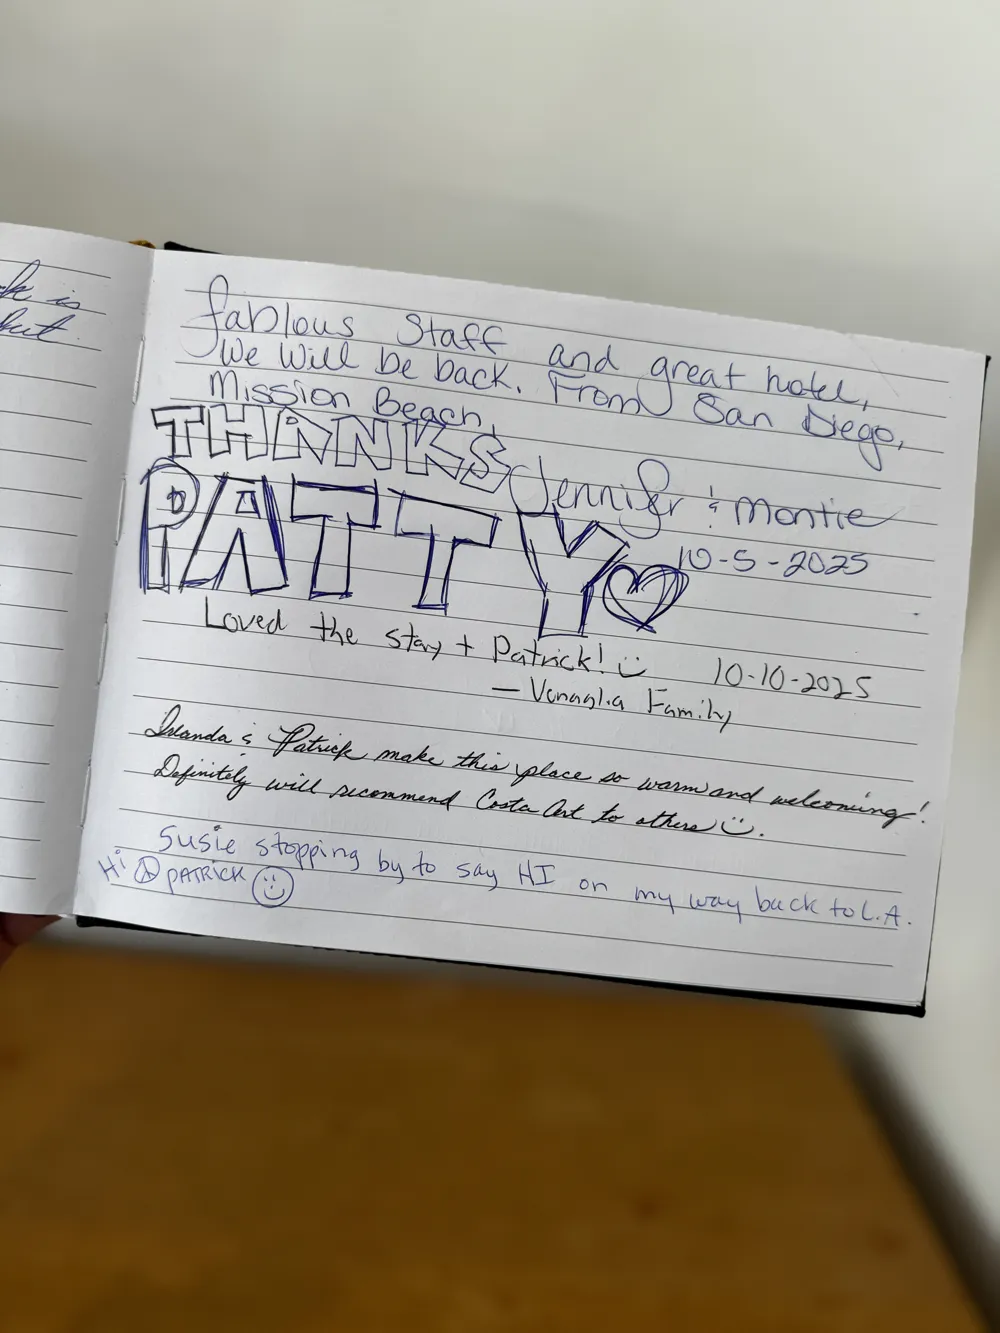 k is
but
fablous Staff and great hotel,
We Will be back. From San Diego,
Mission Beach,
THANKS
Jennifer & Montie
PATTY
10-5-2025
Loved the stay + Patrick!
10-10-2025
— Venaglia Family
& Patrick make this place so warm and welcoming!
Definitely will recommend Costa Art to others
Susie stopping by to say HI on my way back to L.A.
Hi PATRICK